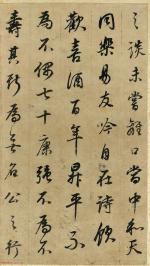 之談未嘗離口當中和天
同樂易友吟自在詩飲
歡喜酒百年昇平不
為不偶七十康強不為不
壽其斯為無名公之行